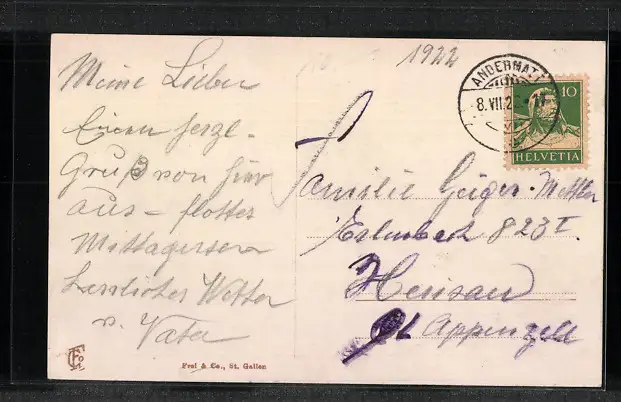 1922
Meine Lieben
Einen herzl.
Gruß von hier
aus – flottes
Mittagessen
herrliches Wetter
v. Vater
ANDERMATT
8.VII.2
10
HELVETIA
Familie Geiger-Mettler
823 I.
Herisau
Appenzell
Frei & Co., St. Gallen